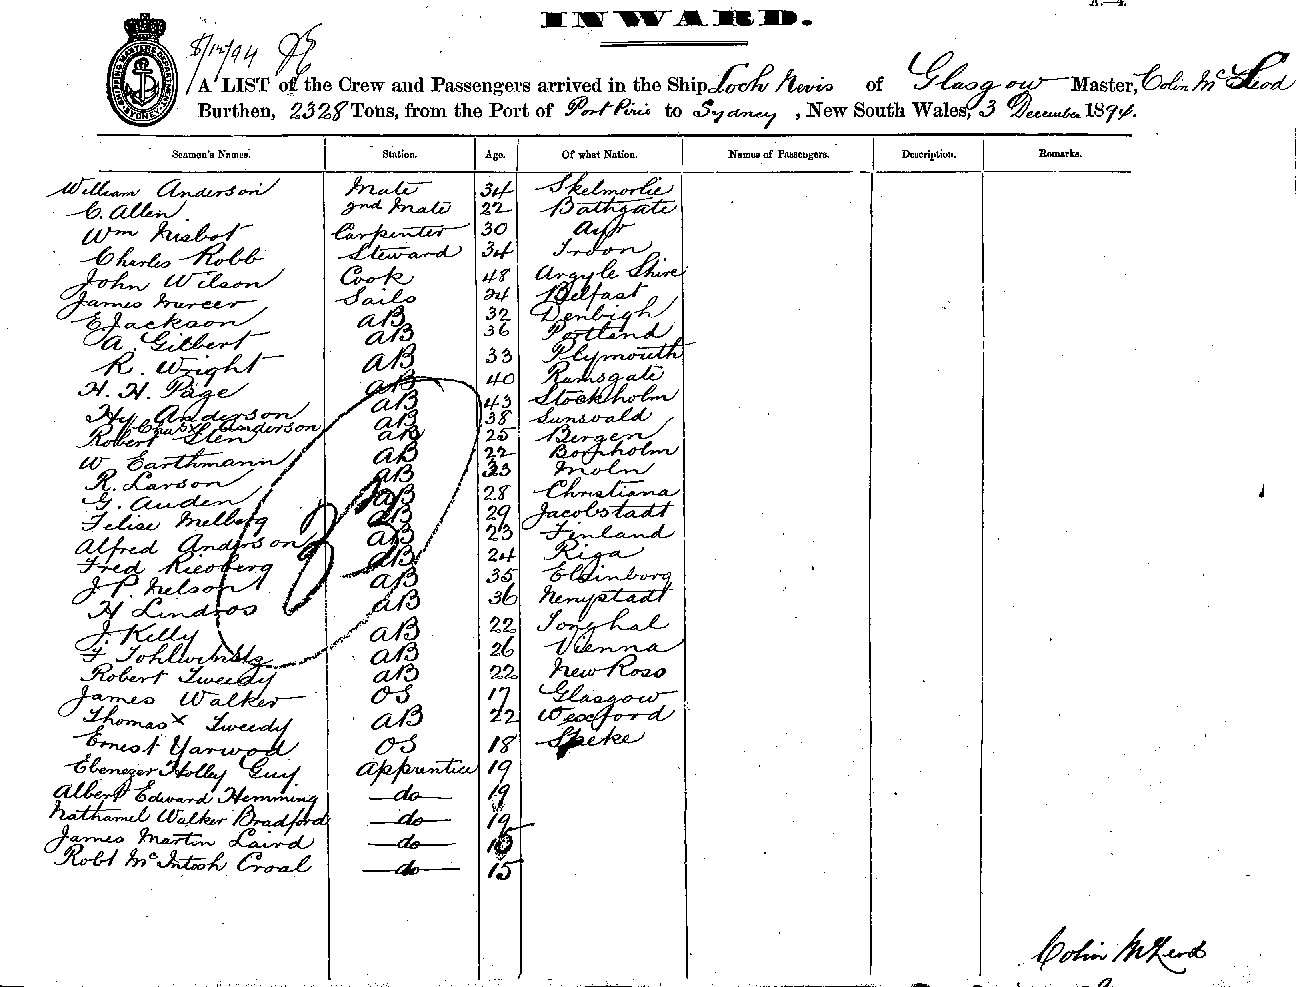 A.—4.
INWARD.
8/12/94
A LIST of the Crew and Passengers arrived in the Ship Loch Nevis of Glasgow Master, Colin McLeod
Burthen, 2328 Tons, from the Port of Port Pirie to Sydney, New South Wales, 3 December 1894.
Seamen's Names. Station. Age. Of what Nation. Names of Passengers. Description. Remarks.
William Anderson Mate 34 Skelmorlie
C. Allen 2nd Mate 22 Bathgate
Wm Nisbot Carpenter 30 Ayr
Charles Robb Steward 34 Troon
John Wilson Cook 48 Argyle Shire
James Mercer Sails 24 Belfast
E Jackson AB 32 Denbigh
A. Gilbert AB 36 Portland
R. Wright AB 33 Plymouth
H. H. Page AB 40 Ramsgate
Hy Anderson AB 43 Stockholm
Chas x Anderson AB 38 Sunsvald
Robert Sten AB 25 Bergen
W Earthmann AB 22 Bornholm
R. Larson AB 23 Moln
G. Auden AB 28 Christiana
Felise Melberg AB 29 Jacobstadt
Alfred Anderson AB 23 Finland
Fred Riesberg AB 24 Riga
J. P. Nelson AB 35 Elsinborg
H Lindros AB 36 Nenystadt
J. Kelly AB 22 Youghal
F AB 26 Vienna
Robert Tweedy AB 22 New Ross
James Walker OS 17 Glasgow
Thomas x Tweedy AB 22 Wexford
Ernest Yarwood OS 18 Speke
Ebenezer Holley Guy Apprentice 19
Albert Edward Hemming —do— 19
Nathaniel Walker Bradford —do— 19
James Martin Laird —do—
Robt McIntosh Croal —do— 15
Colin McLeod